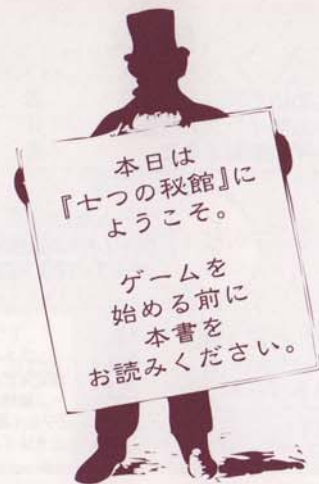 本日は
『七つの秘館』に
ようこそ。
ゲームを
始める前に
本書を
お読みください。